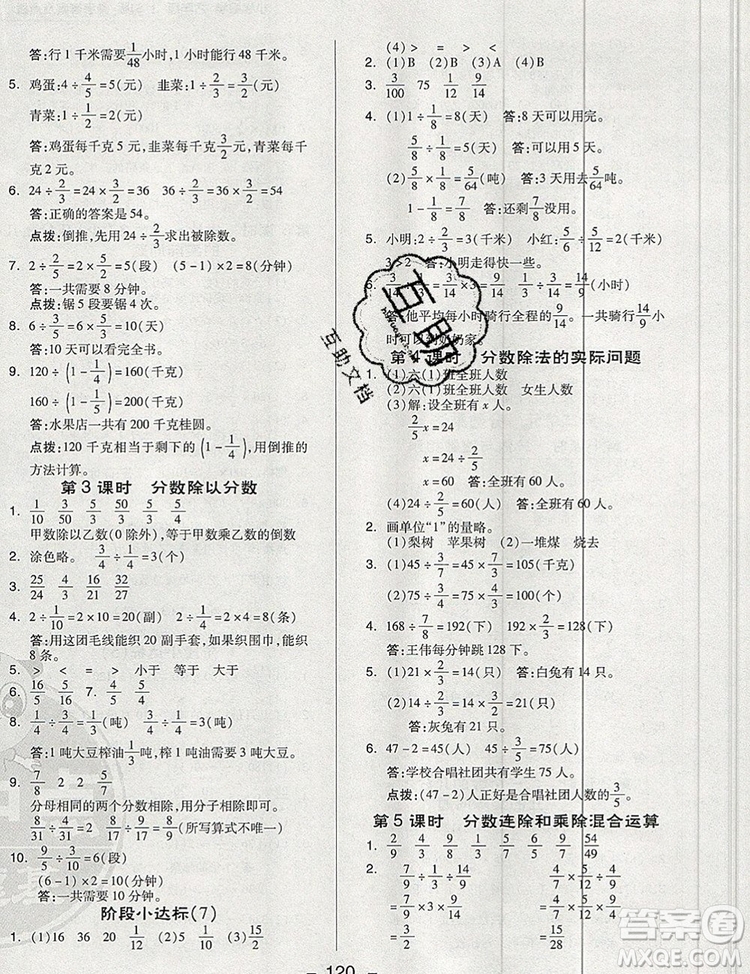 答:行1千米需要1/48小时,1小时能行48千米。
5. 鸡蛋:4÷4/5=5(元) 韭菜:1/2÷1/3=3/2(元)
青菜:1÷1/2=2(元)
答:鸡蛋每千克5元,韭菜每千克3/2元,青菜每千克2元。
6. 24÷2/3=24×3/2=36 36÷2/3=36×3/2=54
答:正确的答案是54。
点拨:倒推,先由24÷2/3求出被除数。
7. 2÷2/5=2×5/2=5(段) (5-1)×2=8(分钟)
答:一共需要8分钟。
点拨:锯5段要锯4次。
8. 6÷3/5=10(天) 答:10天可以看完全书。
9. 120÷(1-1/4)=120×4/3=160(千克)
160÷(1-1/5)=160×5/4=200(千克)
答:水果店一共有200千克桂圆。
点拨:120千克相当于剩下的(1-1/4),用倒推的
方法计算。
第3课时 分数除以分数
1. 1/10 1/30 5/50 5/5 5/4
甲数除以乙数(0除外),等于甲数乘乙数的倒数
2. 涂色略。 3/4÷1/4=3(个)
3. 25/24 4/3 16/21 16/31
4. 2÷1/10=2×10=20(副) 2÷1/4=2×4=8(条)
答:用这团毛线能织20副手套,如果织围巾,能织
8条。
5. > < = > 小于 等于 大于
6. 16/5 5/16 7. 4/5 5/4
8. 1/4÷3/4=1/3(吨) 3/4÷1/4=3(吨)
答:1吨大豆榨油1/3吨,榨1吨油需要大豆3吨。
9. 7/8 2 2 7/8
分母相同的两个分数相除,用分子相除即可。
8/31÷15/31=8/15 7/50÷9/50=7/9(所写算式不唯一)
10. 9/5÷3/10=6(段)
(6-1)×2=10(分钟)
答:一共需要10分钟。
阶段小达标(7)
1. (1)16 36 20 1/12 (2)5/2 (3)15/2
(4)> < = >
2. (1)B (2)A (3)B
3. 3/100 75 1/12 9/14
4. (1)1÷1/8=8(天) 答:8天可以用完。
5/8÷1/8=5(天) 答:可以用5天。
(2)1/8×5/8=5/64(吨) 答:3天用了5/64吨。
1-1/8=7/8(吨) 答:还剩7/8没用。
5. 小明:2÷2/3=3(千米) 小红:5/6÷5/12=2(千米)
3>2 答:小明走得快一些。
答:他平均每小时骑行全程的9/14。一共骑行14/9小
第4课时 分数除法的实际问题
1. (1)六(1)班全班人数
(2)六(1)班全班人数 女生人数
(3)解:设全班有x人。
2/5x=24
x=24÷2/5
x=60
答:全班有60人。
(4)24÷2/5=60(人) 答:全班有60人。
2. 画单位“1”的量略。
(1)梨树 苹果树 (2)一堆煤 烧去
3. (1)45÷3/7=45×7/3=105(千克)
(2)75÷5/7=75×7/5=105(千克)
4. 168÷7/8=192(下) 192÷3/2=128(下)
答:王伟每分钟跳128下。
5. (1)21×2/3=14(只) 答:白兔有14只。
(2)14÷2/3=14×3/2=21(只)
答:灰兔有21只。
6. 47-2=45(人) 45÷3/5=75(人)
答:学校合唱社团共有学生75人。
点拨:(47-2)人正好是合唱社团人数的3/5。
第5课时 分数连除和乘除混合运算
120
互助
互助文档
答案圈
MXQE.COM